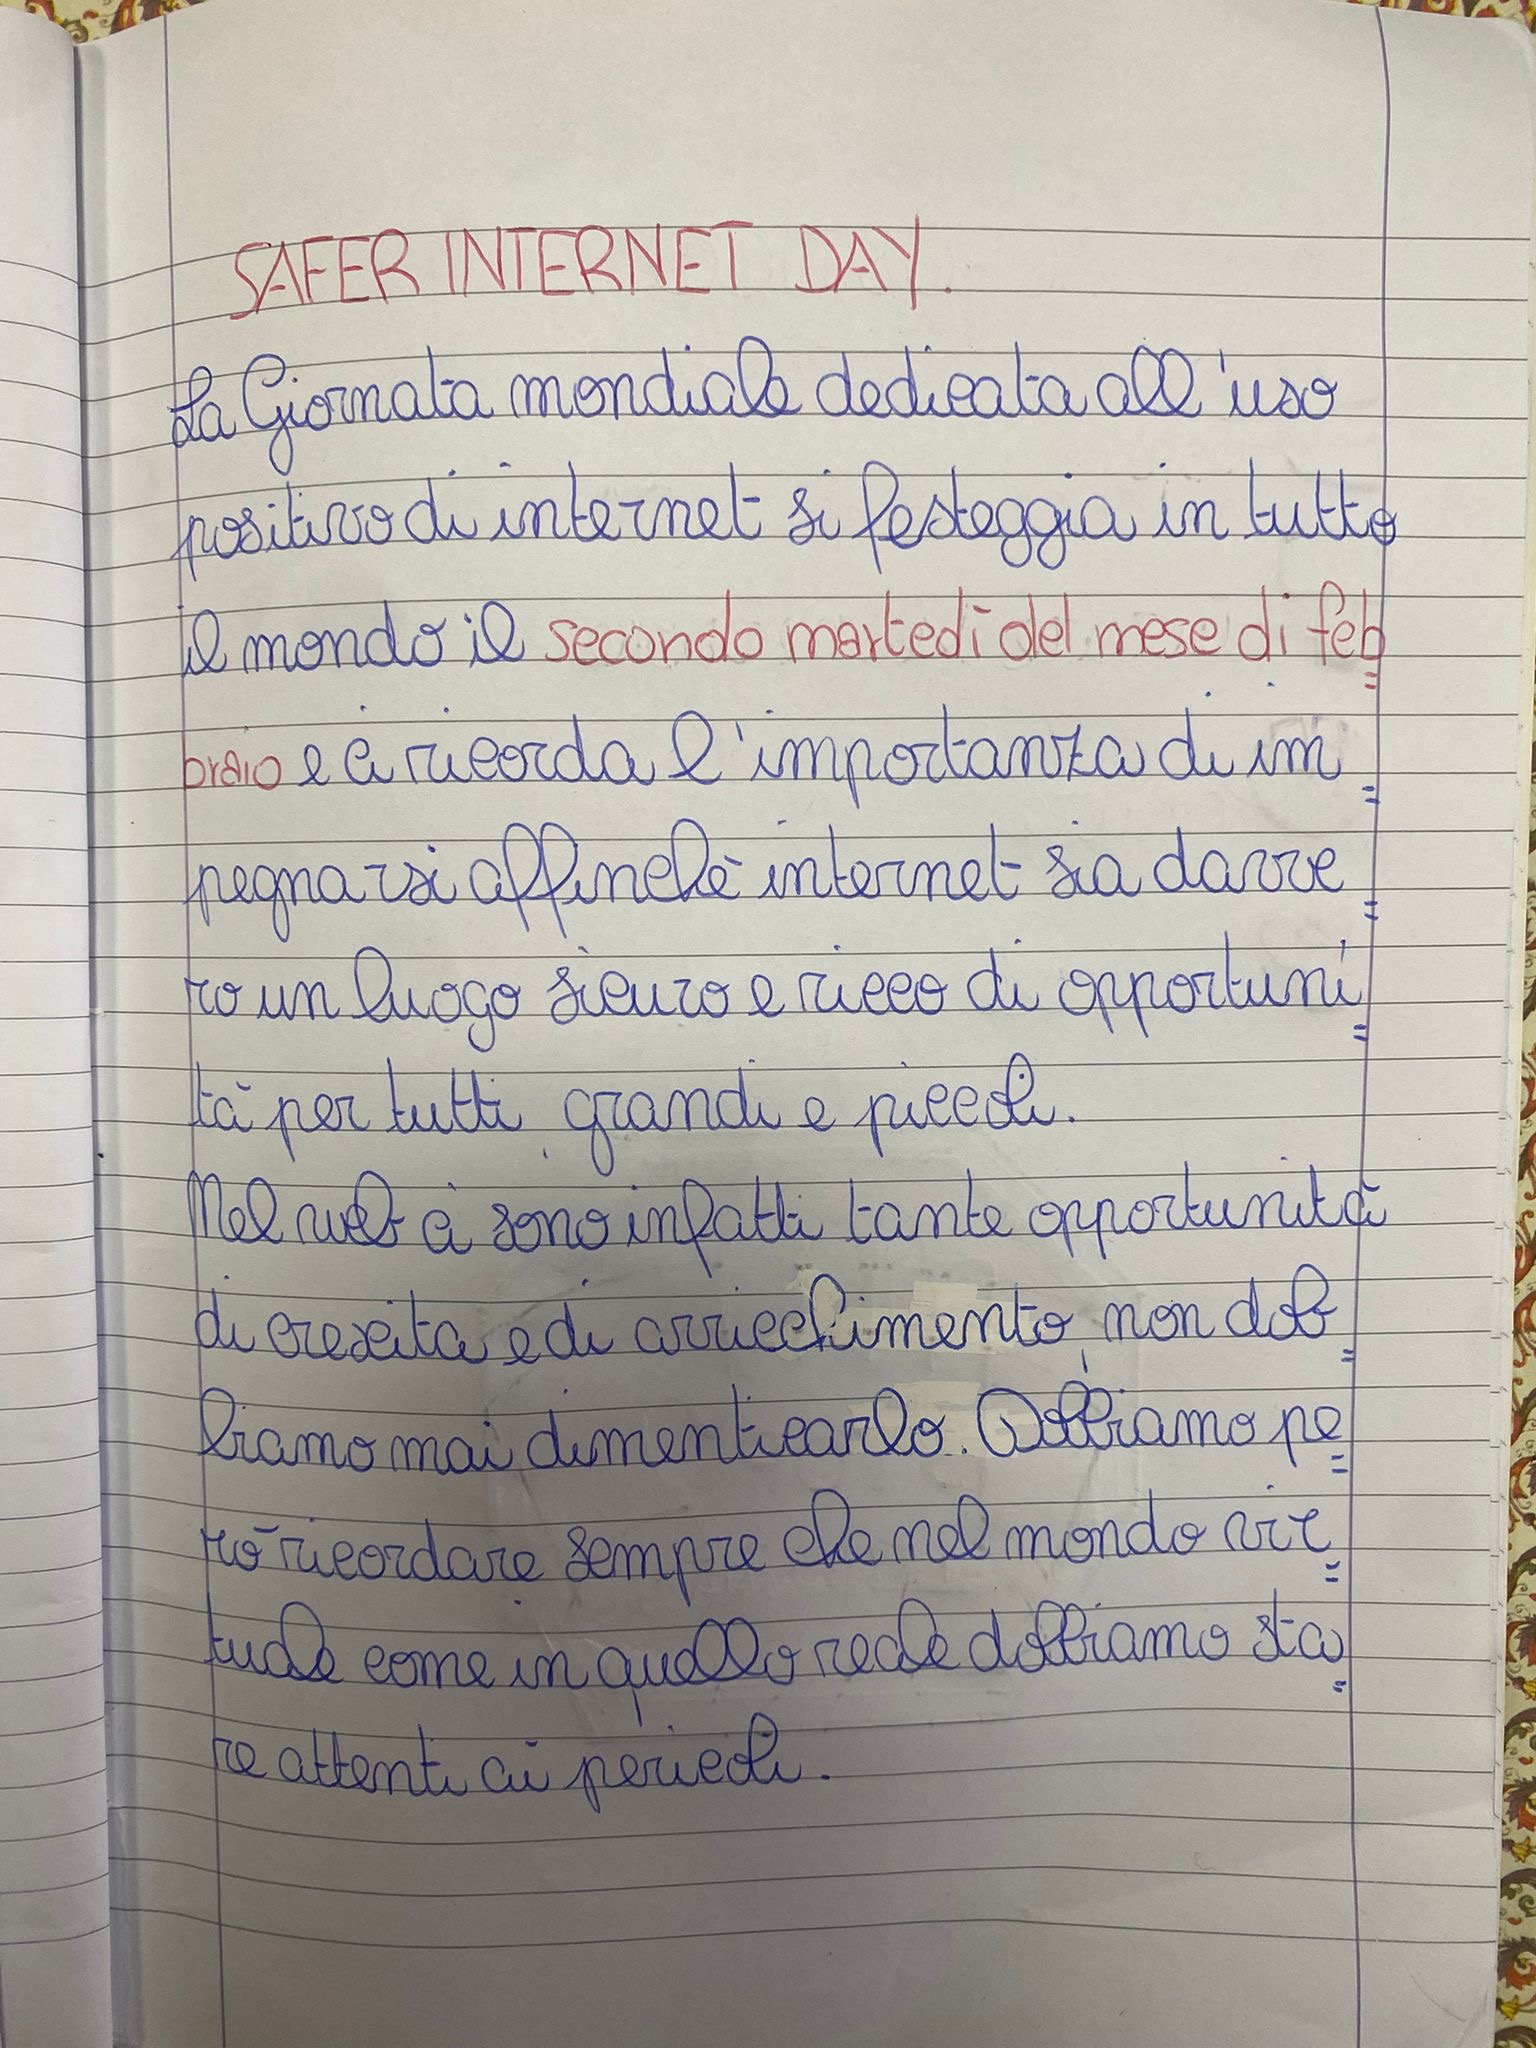 SAFER INTERNET DAY.
La Giornata mondiale dedicata all'uso
positivo di internet si festeggia in tutto
il mondo il secondo martedì del mese di feb=
braio e ci ricorda l'importanza di im=
pegnarsi affinchè internet sia davve=
ro un luogo sicuro e ricco di opportuni=
tà per tutti, grandi e piccoli.
Nel web ci sono infatti tante opportunità
di crescita e di arricchimento, non dob=
biamo mai dimenticarlo. Dobbiamo pe=
rò ricordare sempre che nel mondo vir=
tuale come in quello reale dobbiamo sta=
re attenti ai pericoli.